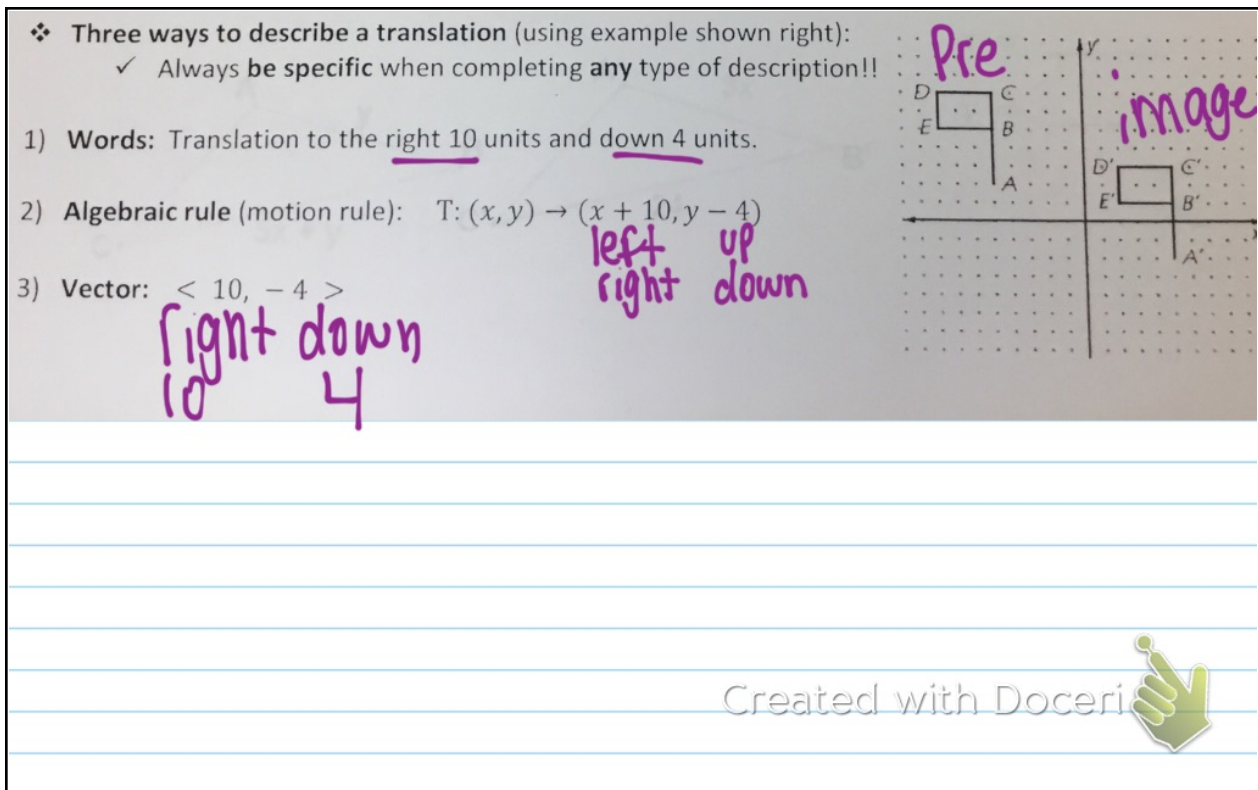 ❖ Three ways to describe a translation (using example shown right):
✓ Always be specific when completing any type of description!!
1) Words: Translation to the right 10 units and down 4 units.
2) Algebraic rule (motion rule): T: (x, y) → (x + 10, y − 4)
left up
right down
3) Vector: < 10, − 4 >
right down
10 4
Pre
image
y
D C
E B
A
D' C'
E' B'
x
A'
Created with Doceri